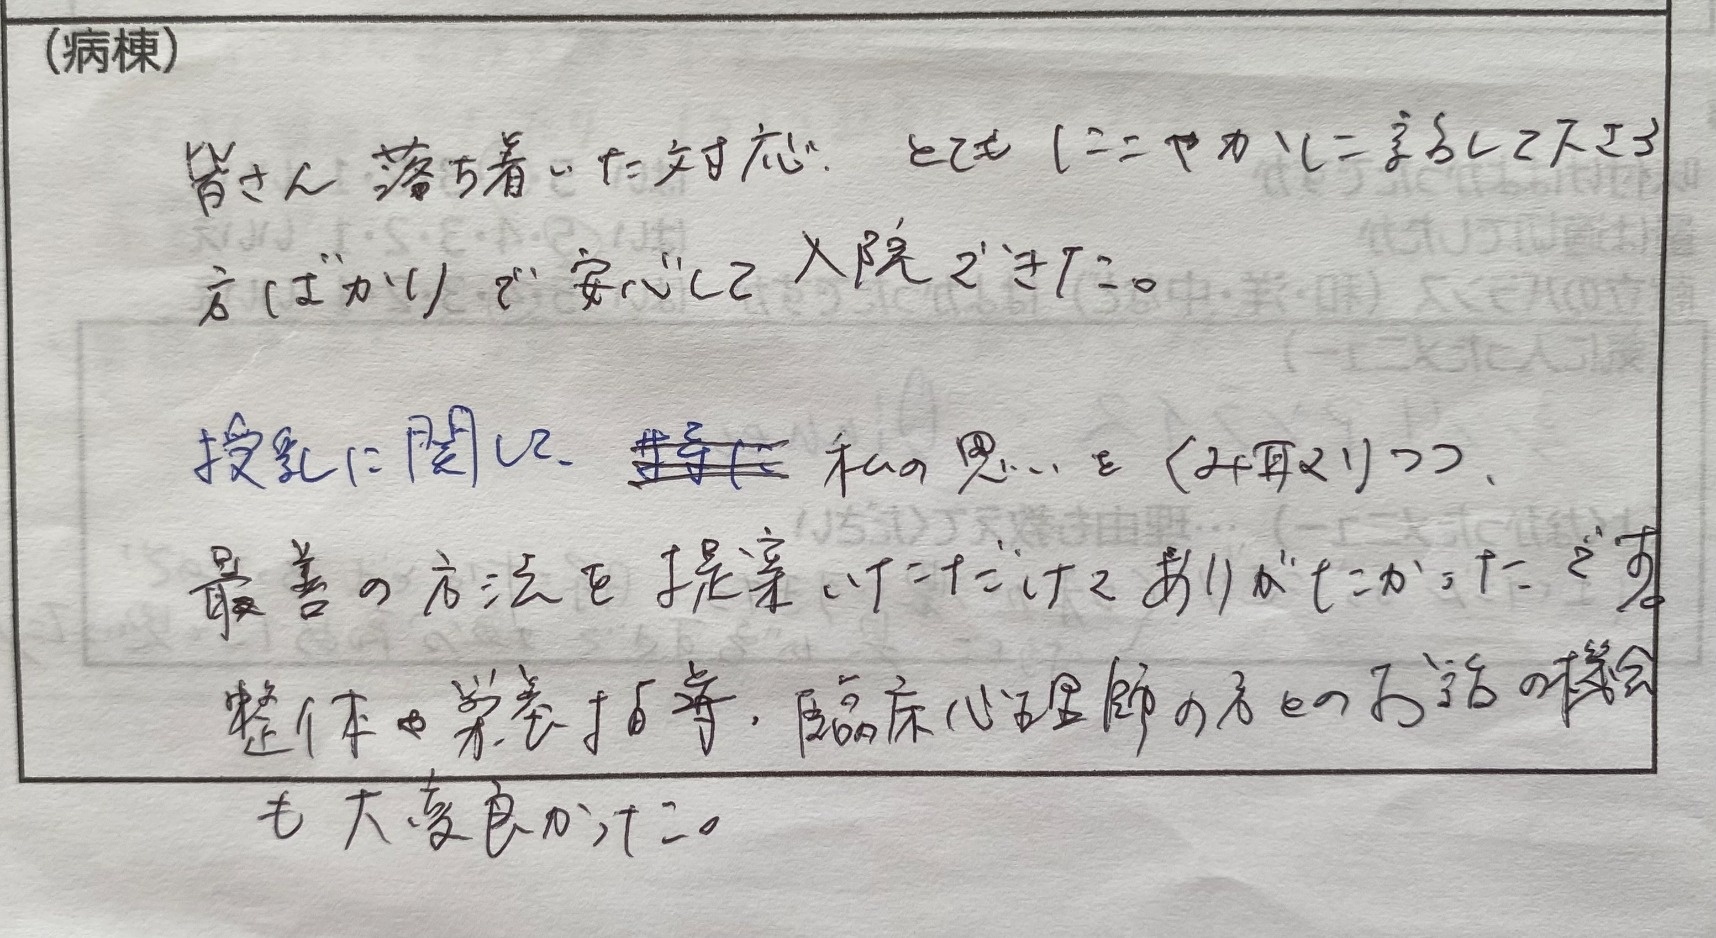 （病棟）
皆さん 落ち着いた対応. とても にこやかに話して下さる
方ばかりで安心して入院できた。
授乳に関して、 私の思いをくみ取りつつ、
最善の方法を提案いただけてありがたかったです。
整体や栄養指導、臨床心理師の方とのお話の機会
も大変良かった。